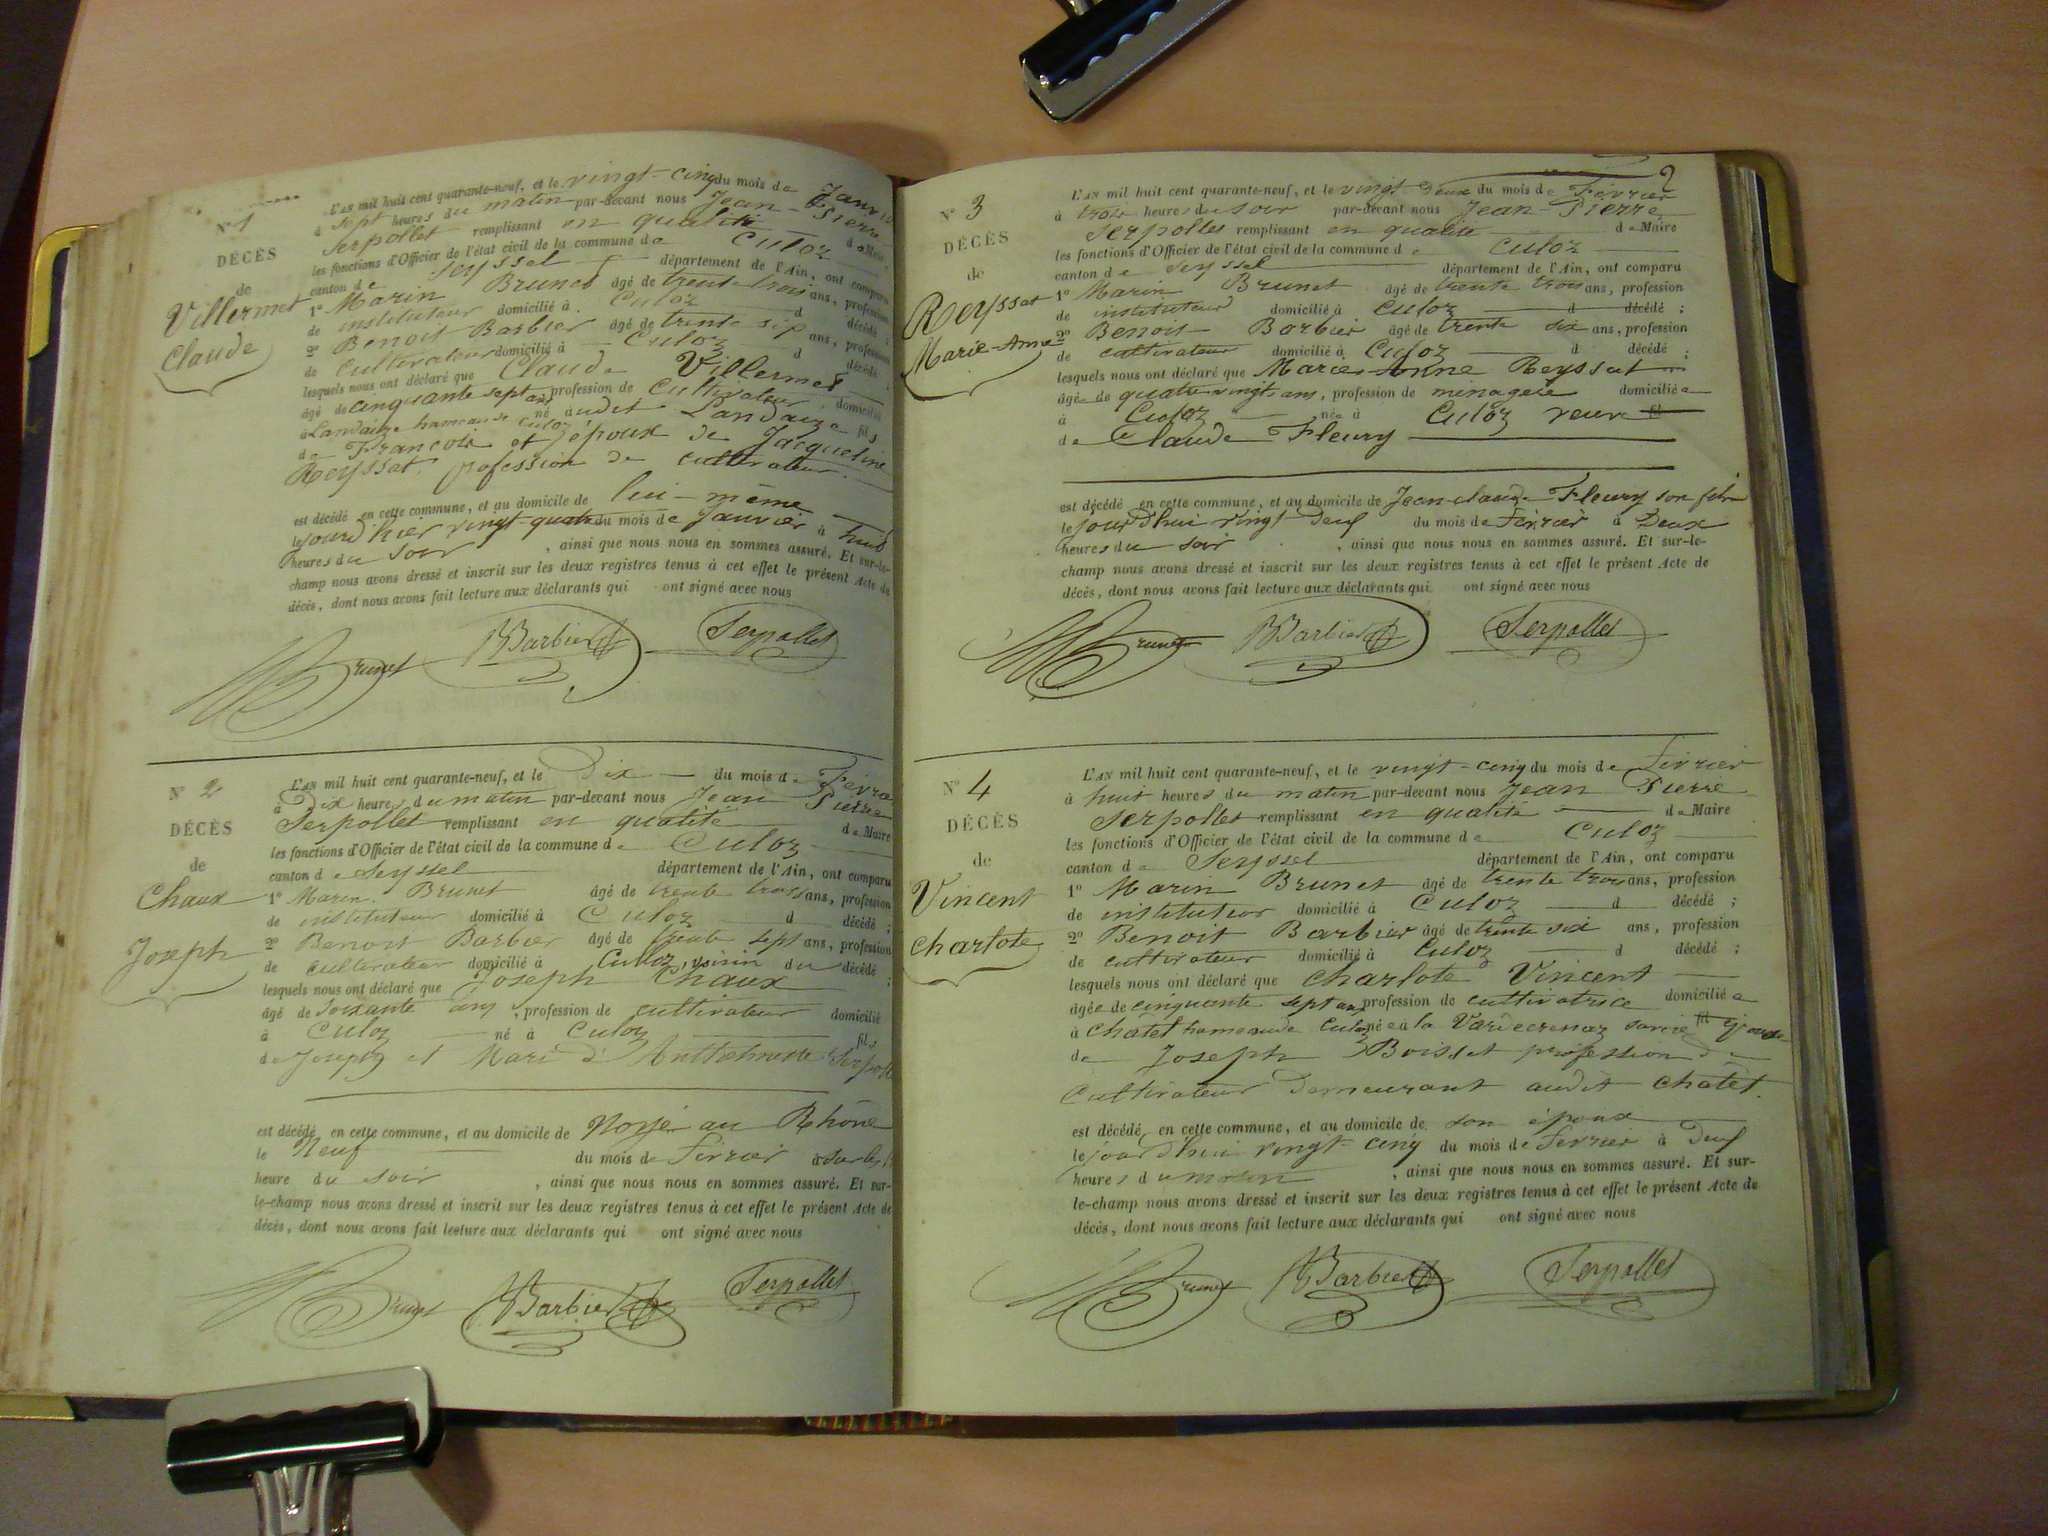 N° 1
DÉCÈS
de
Villermet
Claude
L'AN mil huit cent quarante-neuf, et le vingt-cinq du mois de Janvier
à sept heures du matin par-devant nous Jean-Pierre
Serpollet remplissant en qualité de Maire
les fonctions d'Officier de l'état civil de la commune de Culoz
canton de Seyssel département de l'Ain, ont comparu
1° Marin Brunet âgé de trente trois ans, profession
de instituteur domicilié à Culoz d décédé ;
2° Benoit Barbier âgé de trente six ans, profession
de Cultivateur domicilié à Culoz d décédé ;
lesquels nous ont déclaré que Claude Villermet
âgé de cinquante sept ans, profession de Cultivateur domicilié
à Landaize hameau de Culoz né audit Landaize fils
de Francois et époux de Jacqueline
Reyssat profession de cultivateur
est décédé en cette commune, et au domicile de lui-même
le jourd'hier vingt-quatre du mois de Janvier à huit
heures du soir , ainsi que nous nous en sommes assuré. Et sur-le-
champ nous avons dressé et inscrit sur les deux registres tenus à cet effet le présent Acte de
décès, dont nous avons fait lecture aux déclarants qui ont signé avec nous
Brunet Barbier Serpollet
N° 2
DÉCÈS
de
Chaux
Joseph
L'AN mil huit cent quarante-neuf, et le Dix du mois de Févrie
à Dix heures du matin par-devant nous Jean Pierre
Serpollet remplissant en qualité de Maire
les fonctions d'Officier de l'état civil de la commune de Culoz
canton de Seyssel département de l'Ain, ont comparu
1° Marin Brunet âgé de trente trois ans, profession
de instituteur domicilié à Culoz d décédé ;
2° Benoit Barbier âgé de trente sept ans, profession
de cultivateur domicilié à Culoz, voisin du décédé ;
lesquels nous ont déclaré que Joseph Chaux
âgé de soixante ans, profession de cultivateur domicilié
à Culoz né à Culoz fils
de Joseph et Mari d'Anthelmette Serpoll
est décédé en cette commune, et au domicile de Noyé au Rhône
le Neuf du mois de Février à sur les
heure du soir , ainsi que nous nous en sommes assuré. Et sur-
le-champ nous avons dressé et inscrit sur les deux registres tenus à cet effet le présent Acte de
décès, dont nous avons fait lecture aux déclarants qui ont signé avec nous
Brunet Barbier Serpollet
2
N° 3
DÉCÈS
de
Reyssat
Marie-Anne
L'AN mil huit cent quarante-neuf, et le vingt-deux du mois de Février
à trois heures du soir par-devant nous Jean-Pierre
Serpollet remplissant en qualité de Maire
les fonctions d'Officier de l'état civil de la commune de Culoz
canton de Seyssel département de l'Ain, ont comparu
1° Marin Brunet âgé de trente trois ans, profession
de instituteur domicilié à Culoz d décédé ;
2° Benoit Barbier âgé de trente six ans, profession
de cultivateur domicilié à Culoz d décédé ;
lesquels nous ont déclaré que Marie Anne Reyssat
âgée de quatre vingt ans, profession de ménagère domiciliée
à Culoz née à Culoz veuve fil
de Claude Fleury
est décédé en cette commune, et au domicile de Jean-claude Fleury son fils
le jourd'hui vingt-deux du mois de Février à Deux
heures du soir , ainsi que nous nous en sommes assuré. Et sur-le-
champ nous avons dressé et inscrit sur les deux registres tenus à cet effet le présent Acte de
décès, dont nous avons fait lecture aux déclarants qui ont signé avec nous
Brunet Barbier Serpollet
N° 4
DÉCÈS
de
Vincent
charlote
L'AN mil huit cent quarante-neuf, et le vingt-cinq du mois de Février
à huit heures du matin par-devant nous Jean Pierre
Serpollet remplissant en qualité de Maire
les fonctions d'Officier de l'état civil de la commune de Culoz
canton de Seyssel département de l'Ain, ont comparu
1° Marin Brunet âgé de trente trois ans, profession
de instituteur domicilié à Culoz d décédé ;
2° Benoit Barbier âgé de trente six ans, profession
de cultivateur domicilié à Culoz d décédé ;
lesquels nous ont déclaré que charlote Vincent
âgée de cinquante sept ans profession de cultivatrice domiciliée
à Chatel hameau de Culoz née à la fil épouse
de Joseph Boisset profession de
Cultivateur Demeurant audit chatel.
est décédé en cette commune, et au domicile de son époux
le jourd'hui vingt-cinq du mois de Fevrier à Deux
heures du matin , ainsi que nous nous en sommes assuré. Et sur-
le-champ nous avons dressé et inscrit sur les deux registres tenus à cet effet le présent Acte de
décès, dont nous avons fait lecture aux déclarants qui ont signé avec nous
Brunet Barbier Serpollet